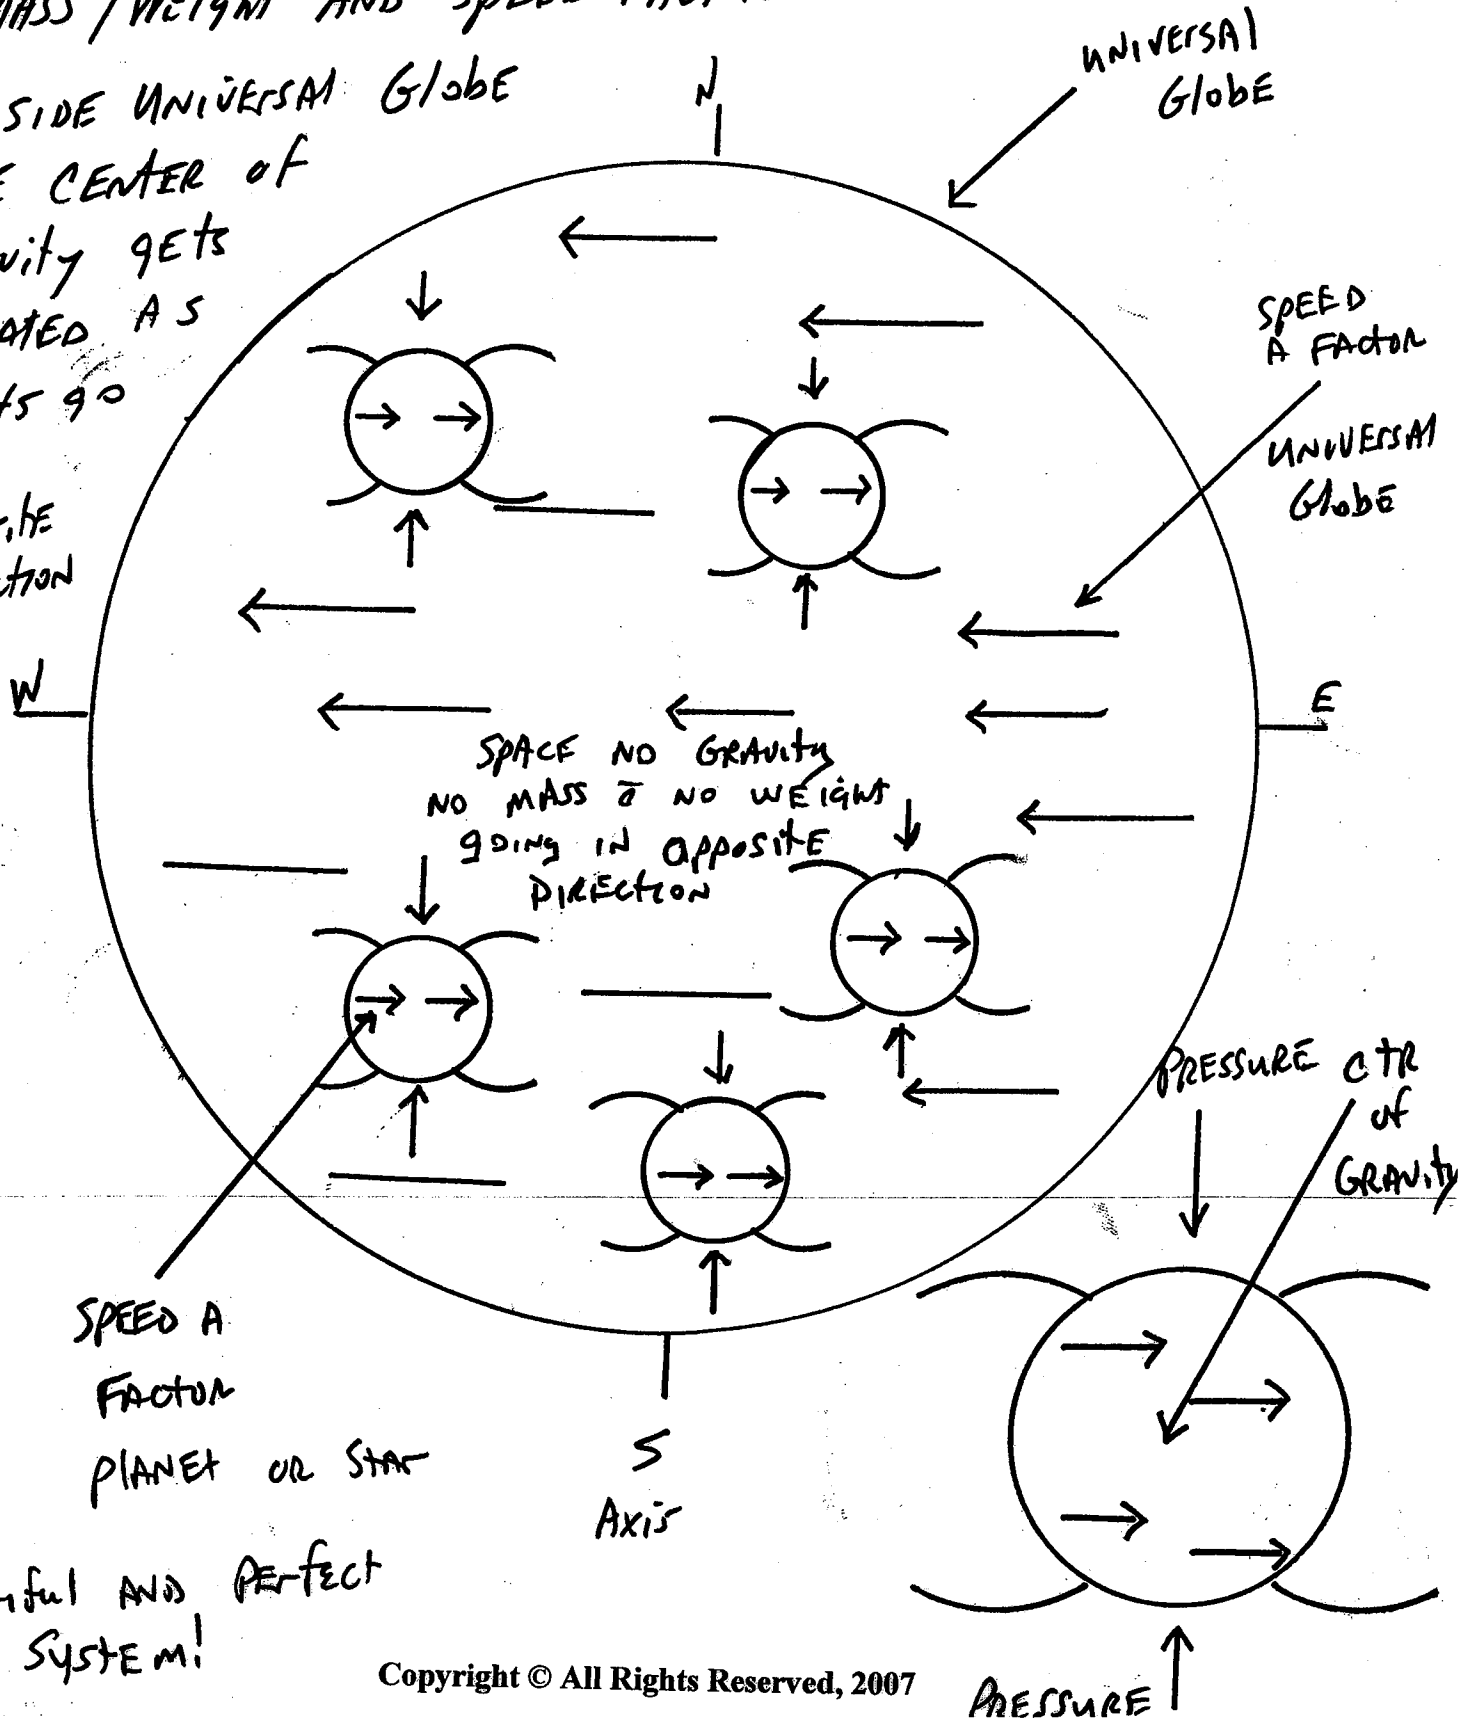 MASS / WEIGHT AND SPEED
SIDE UNIVERSAL Globe
CENTER of
vity gets
ATED AS
ts go
ite
ction
N
UNIVERSAL
Globe
SPEED
A FACTOR
UNIVERSAL
Globe
W
E
SPACE NO GRAVITY
NO MASS c̄ NO WEIGHT
going IN opposite
DIRECTION
PRESSURE
CTR
of
GRAVITY
SPEED A
FACTOR
PLANET OR STAR
S
Axis
iful AND PERfect
SYSTEM!
Copyright © All Rights Reserved, 2007
PRESSURE